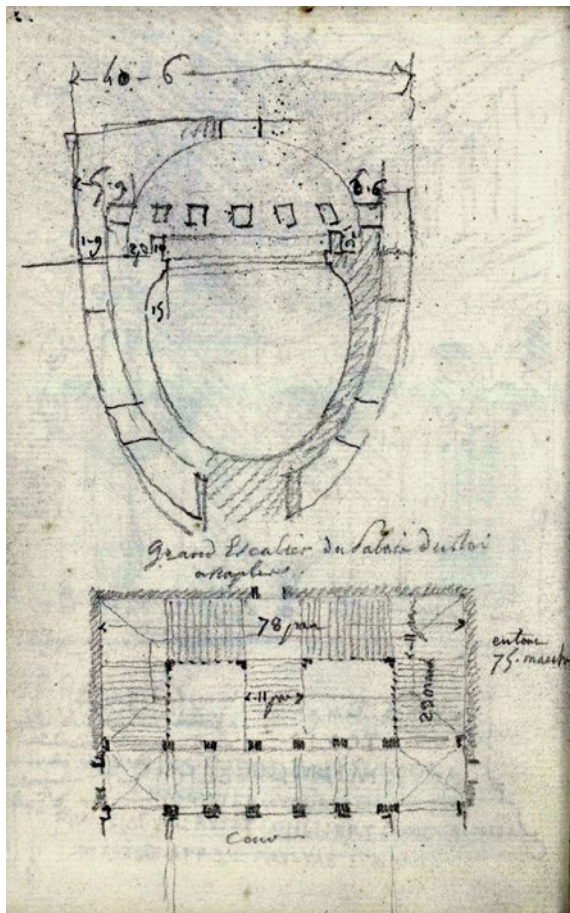 40-6
2-5-9
6-6
1-9
15
Grand Escalier du Palais du Roi
a Naples
78 pas
11 pas
11 pas
en tout
75. march
Cour